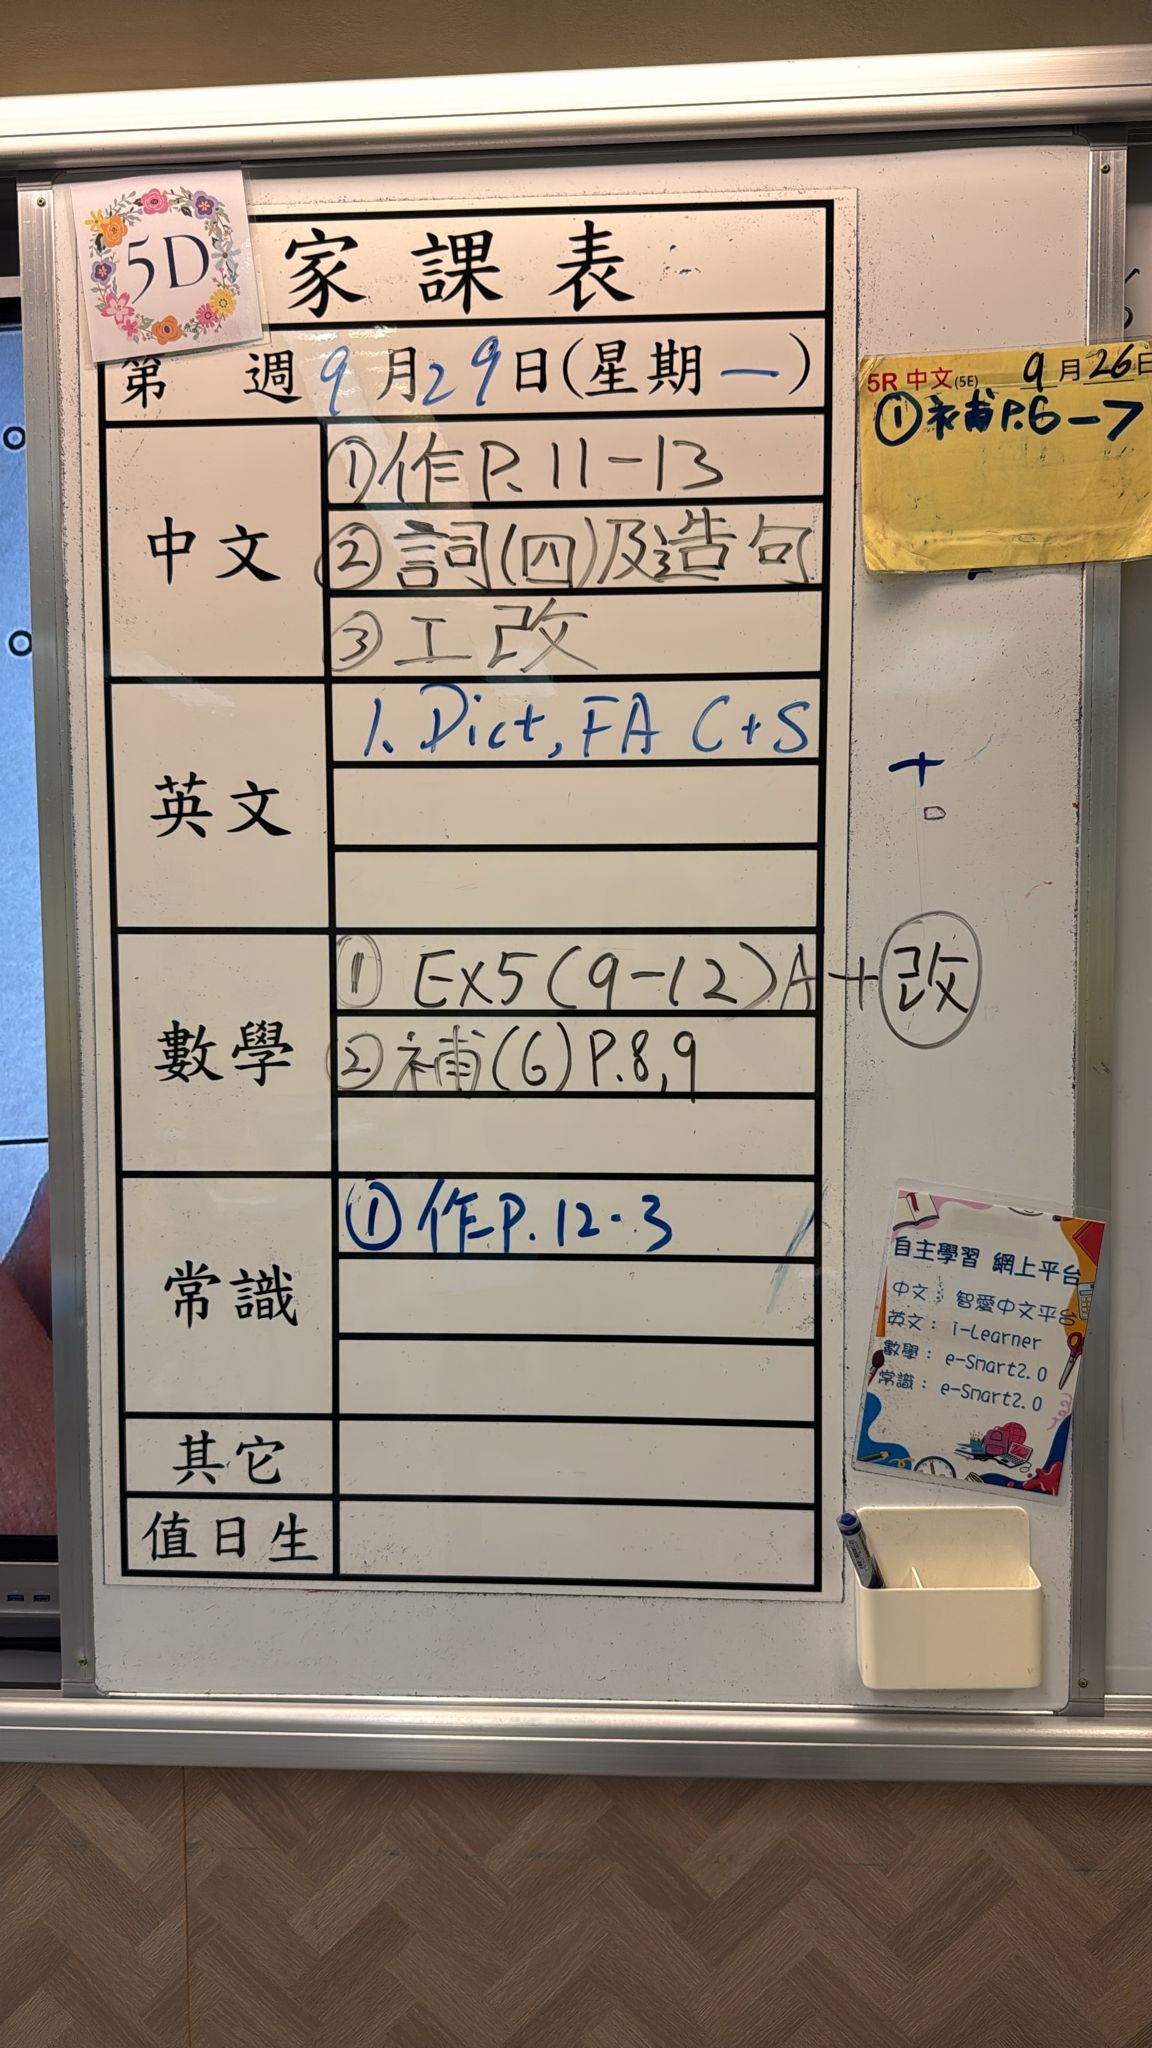 5D
家課表
第 週 9月29日(星期一)
中文
①作P.11-13
②詞(四)及造句
③工改
英文
1. Dict, FA C+S
數學
① EX5(9-12)A+改
②補(6)P.8,9
常識
①作P.12-3
其它
值日生
5R 中文(5E) 9月26日
①補P.6-7
自主學習 網上平台
中文: 智愛中文平台
英文: i-Learner
數學: e-Smart2.0
常識: e-Smart2.0